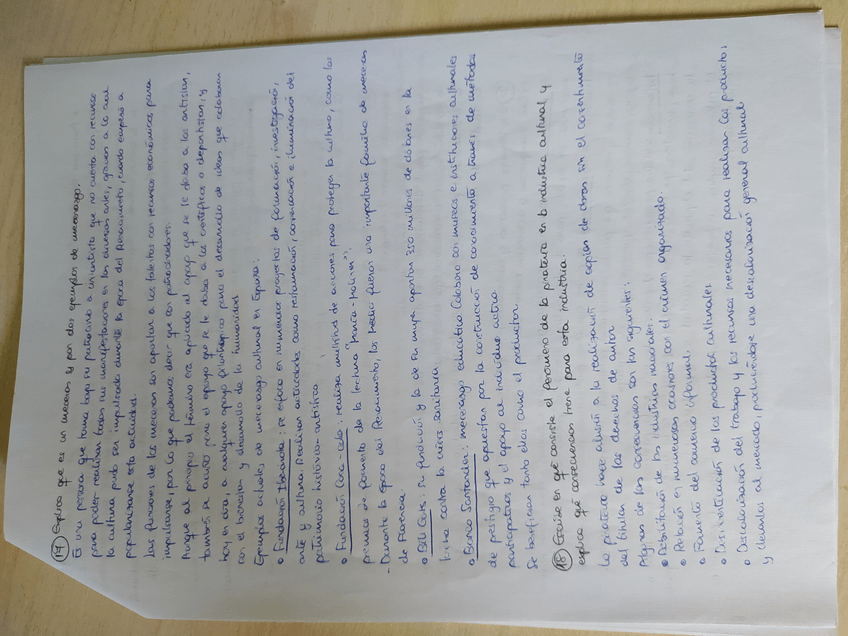 17 Explica que es un mecenas y pon dos ejemplos de mecenazgo.
Es una persona que toma bajo su patrocinio a un artista que no cuenta con recursos
para poder realizar todas sus manifestaciones en las diversas artes, gracias a lo cual
la cultura pudo ser impulsada durante la época del Renacimiento, cuando empezó a
popularizarse esta actividad.
Las funciones de los mecenas son apuntar a los talentos con recursos económicos para
impulsarse, por lo que podríamos decir que son patrocinadores.
Aunque al principio el término era aplicado al apoyo que se le daba a los artistas,
también se acuñó para el apoyo que se le daba a los científicos o deportistas, y
hoy en día, a cualquier apoyo filantrópico para el desarrollo de ideas que colaboran
con el bienestar y desarrollo de la humanidad.
Ejemplos actuales de mecenazgo cultural en España:
• Fundación Iberdrola: se enfoca en numerosos proyectos de formación, investigación,
arte y cultura. Realizan actividades como restauración, conservación e iluminación del
patrimonio histórico-artístico
• Fundación Coca-Cola: realiza multitud de acciones para proteger la cultura, como los
premios de fomento de la lectura "Hache"
- Durante la época del Renacimiento, los Medici fueron una importante familia de mecenas
de Florencia
• Bill Gates: Su fundación y la de su mujer aportan 350 millones de dólares en la
lucha contra la crisis sanitaria
• Banco Santander: mecenazgo educativo. Colabora con museos e instituciones culturales
de prestigio que apuestan por la construcción de conocimiento a través de métodos
participativos y el apoyo al individuo activo.
Se benefician tanto ellos como el productor.
18 Escribe en que consiste el fenómeno de la piratería en la industria cultural y
explica qué consecuencias tiene para esta industria.
La piratería hace alusión a la realización de copias de obras sin el consentimiento
del titular de los derechos de autor
Algunas de las consecuencias son las siguientes:
• Debilitación de las industrias nacionales.
• Relación en numerosas ocasiones con el crimen organizado.
• Fomento del comercio informal.
• Desincentivación de los productores culturales
• Desvalorización del trabajo y los recursos necesarios para realizar los productos
y llevarlos al mercado, produciéndose una desvalorización general cultural